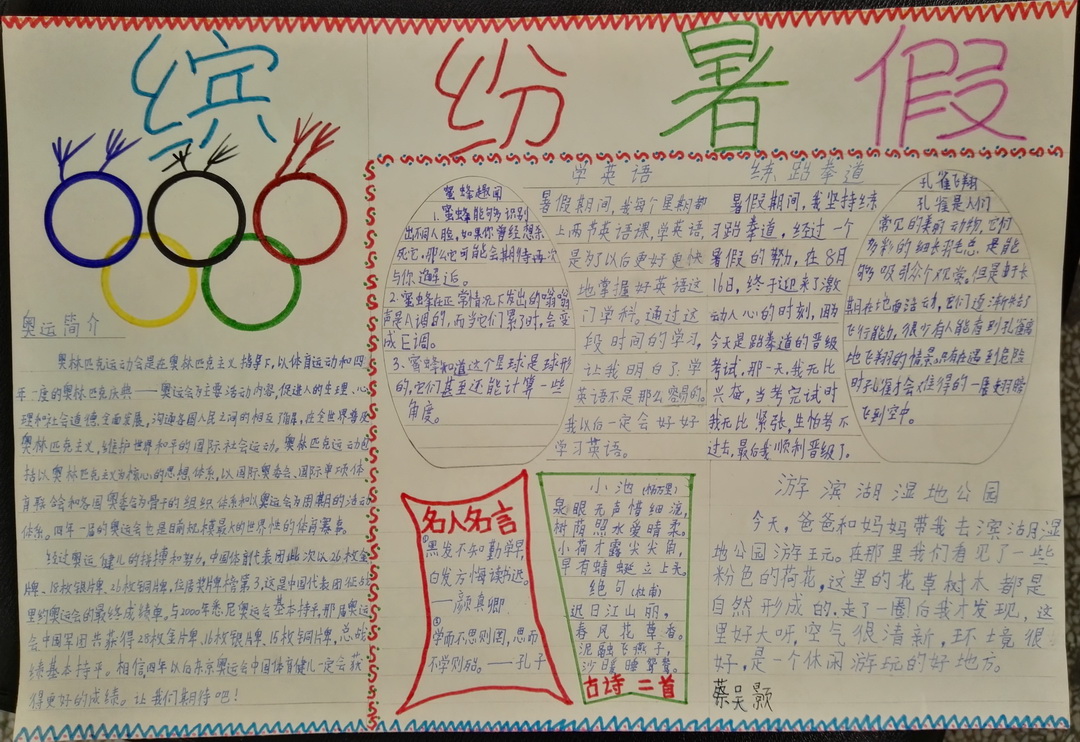 缤纷暑假
奥运简介
奥林匹克运动会是在奥林匹克主义指导下,以体育运动和四
年一度的奥林匹克庆典——奥运会为主要活动内容,促进人的生理、心
理和社会道德全面发展,沟通各国人民之间的相互了解,在全世界普及
奥林匹克主义,维护世界和平的国际社会运动。奥林匹克运动包
括以奥林匹克主义为核心的思想体系,以国际奥委会、国际单项体
育联合会和各国奥委会为骨干的组织体系和以奥运会为周期的活动
体系。四年一届的奥运会也是目前规模最大的世界性的体育赛事。
经过奥运健儿的拼搏和努力,中国体育代表团此次以26枚金
牌、18枚银牌、26枚铜牌,位居奖牌榜第3,这是中国代表团征战
里约奥运会的最终成绩单。与2000年悉尼奥运会基本持平,那届奥运
会中国军团共获得28枚金牌、16枚银牌、15枚铜牌,总成
绩基本持平。相信四年以后东京奥运会中国体育健儿一定会获
得更好的成绩。让我们期待吧!
蜜蜂趣闻
1.蜜蜂能够识别
出不同人脸,如果你曾经想杀
死它,那么它可能会期待再次
与你邂逅。
2.蜜蜂在正常情况下发出的嗡嗡
声是A调的,而当它们累了时,会变
成E调。
3、蜜蜂知道这个星球是球形
的,它们甚至还能计算一些
角度。
学英语
暑假期间,我每个星期都
上两节英语课,学英语,
是为以后更好更快
地掌握好英语这
门学科。通过这
段时间的学习,
让我明白了学
英语不是那么容易的。
我以后一定会好好
学习英语。
练跆拳道
暑假期间,我坚持练
习跆拳道,经过一个
暑假的努力,在8月
16日,终于迎来了激
动人心的时刻,因为
今天是跆拳道的晋级
考试,那一天,我无比
兴奋,当考完试时
我无比紧张,生怕考不
过去,最后我顺利晋级了。
孔雀飞翔
孔雀是人们
常见的美丽动物,它们
多彩的细长羽毛总是能
够吸引众个观赏。但是由于长
期在地面活动,它们逐渐失去了
飞行能力,很少有人能看到孔雀离
地飞翔的情景。只有在遇到危险
时孔雀才会难得的一展翅膀
飞到空中。
名人名言
①黑发不知勤学早,
白发方悔读书迟。
——颜真卿
②学而不思则罔,思而
不学则殆。——孔子
小池(杨万里)
泉眼无声惜细流,
树荫照水爱晴柔。
小荷才露尖尖角,
早有蜻蜓立上头。
绝句(杜甫)
迟日江山丽,
春风花草香。
泥融飞燕子,
沙暖睡鸳鸯。
古诗二首
游滨湖湿地公园
今天,爸爸和妈妈带我去滨湖湿
地公园游玩。在那里我们看见了一些
粉色的荷花,这里的花草树木都是
自然形成的。走了一圈后我才发现,这
里好大呀,空气很清新,环境很
好,是一个休闲游玩的好地方。
蔡吴颢